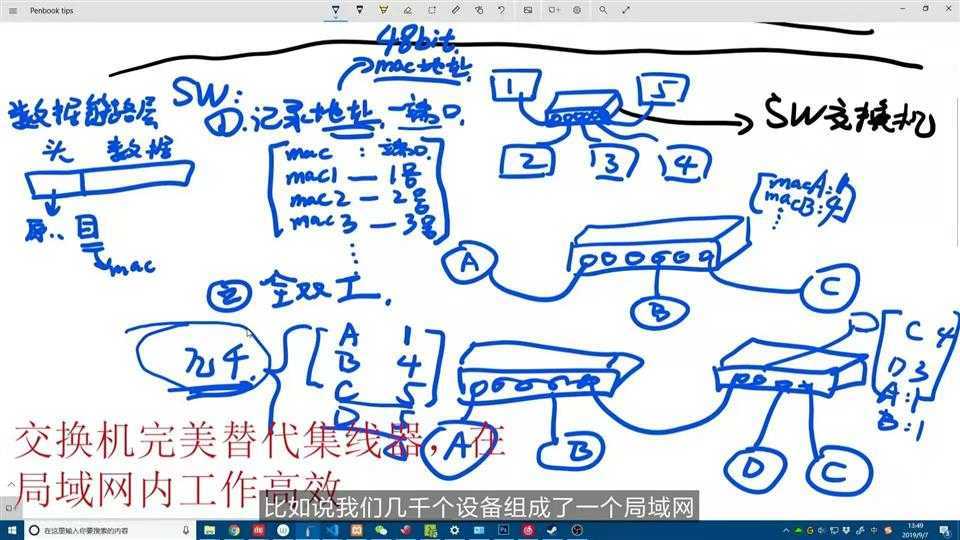 Penbook tips
48bit
mac地址
SW:
数据链路层
①.记录地址—端口.
头 数据
mac : 端口.
mac1 — 1号
mac2 — 2号
mac3 — 3号
源.. 目
mac
② 全双工.
1
5
2
3
4
SW交换机
macA:1
macB:4
A
B
C
几千.
A 1
B 4
C 5
D 5
A
B
D
C
C 4
D 3
A:1
B:1
交换机完美替代集线器，在
局域网内工作高效
比如说我们几千个设备组成了一个局域网
在这里输入你要搜索的内容
13:49
2019/9/7